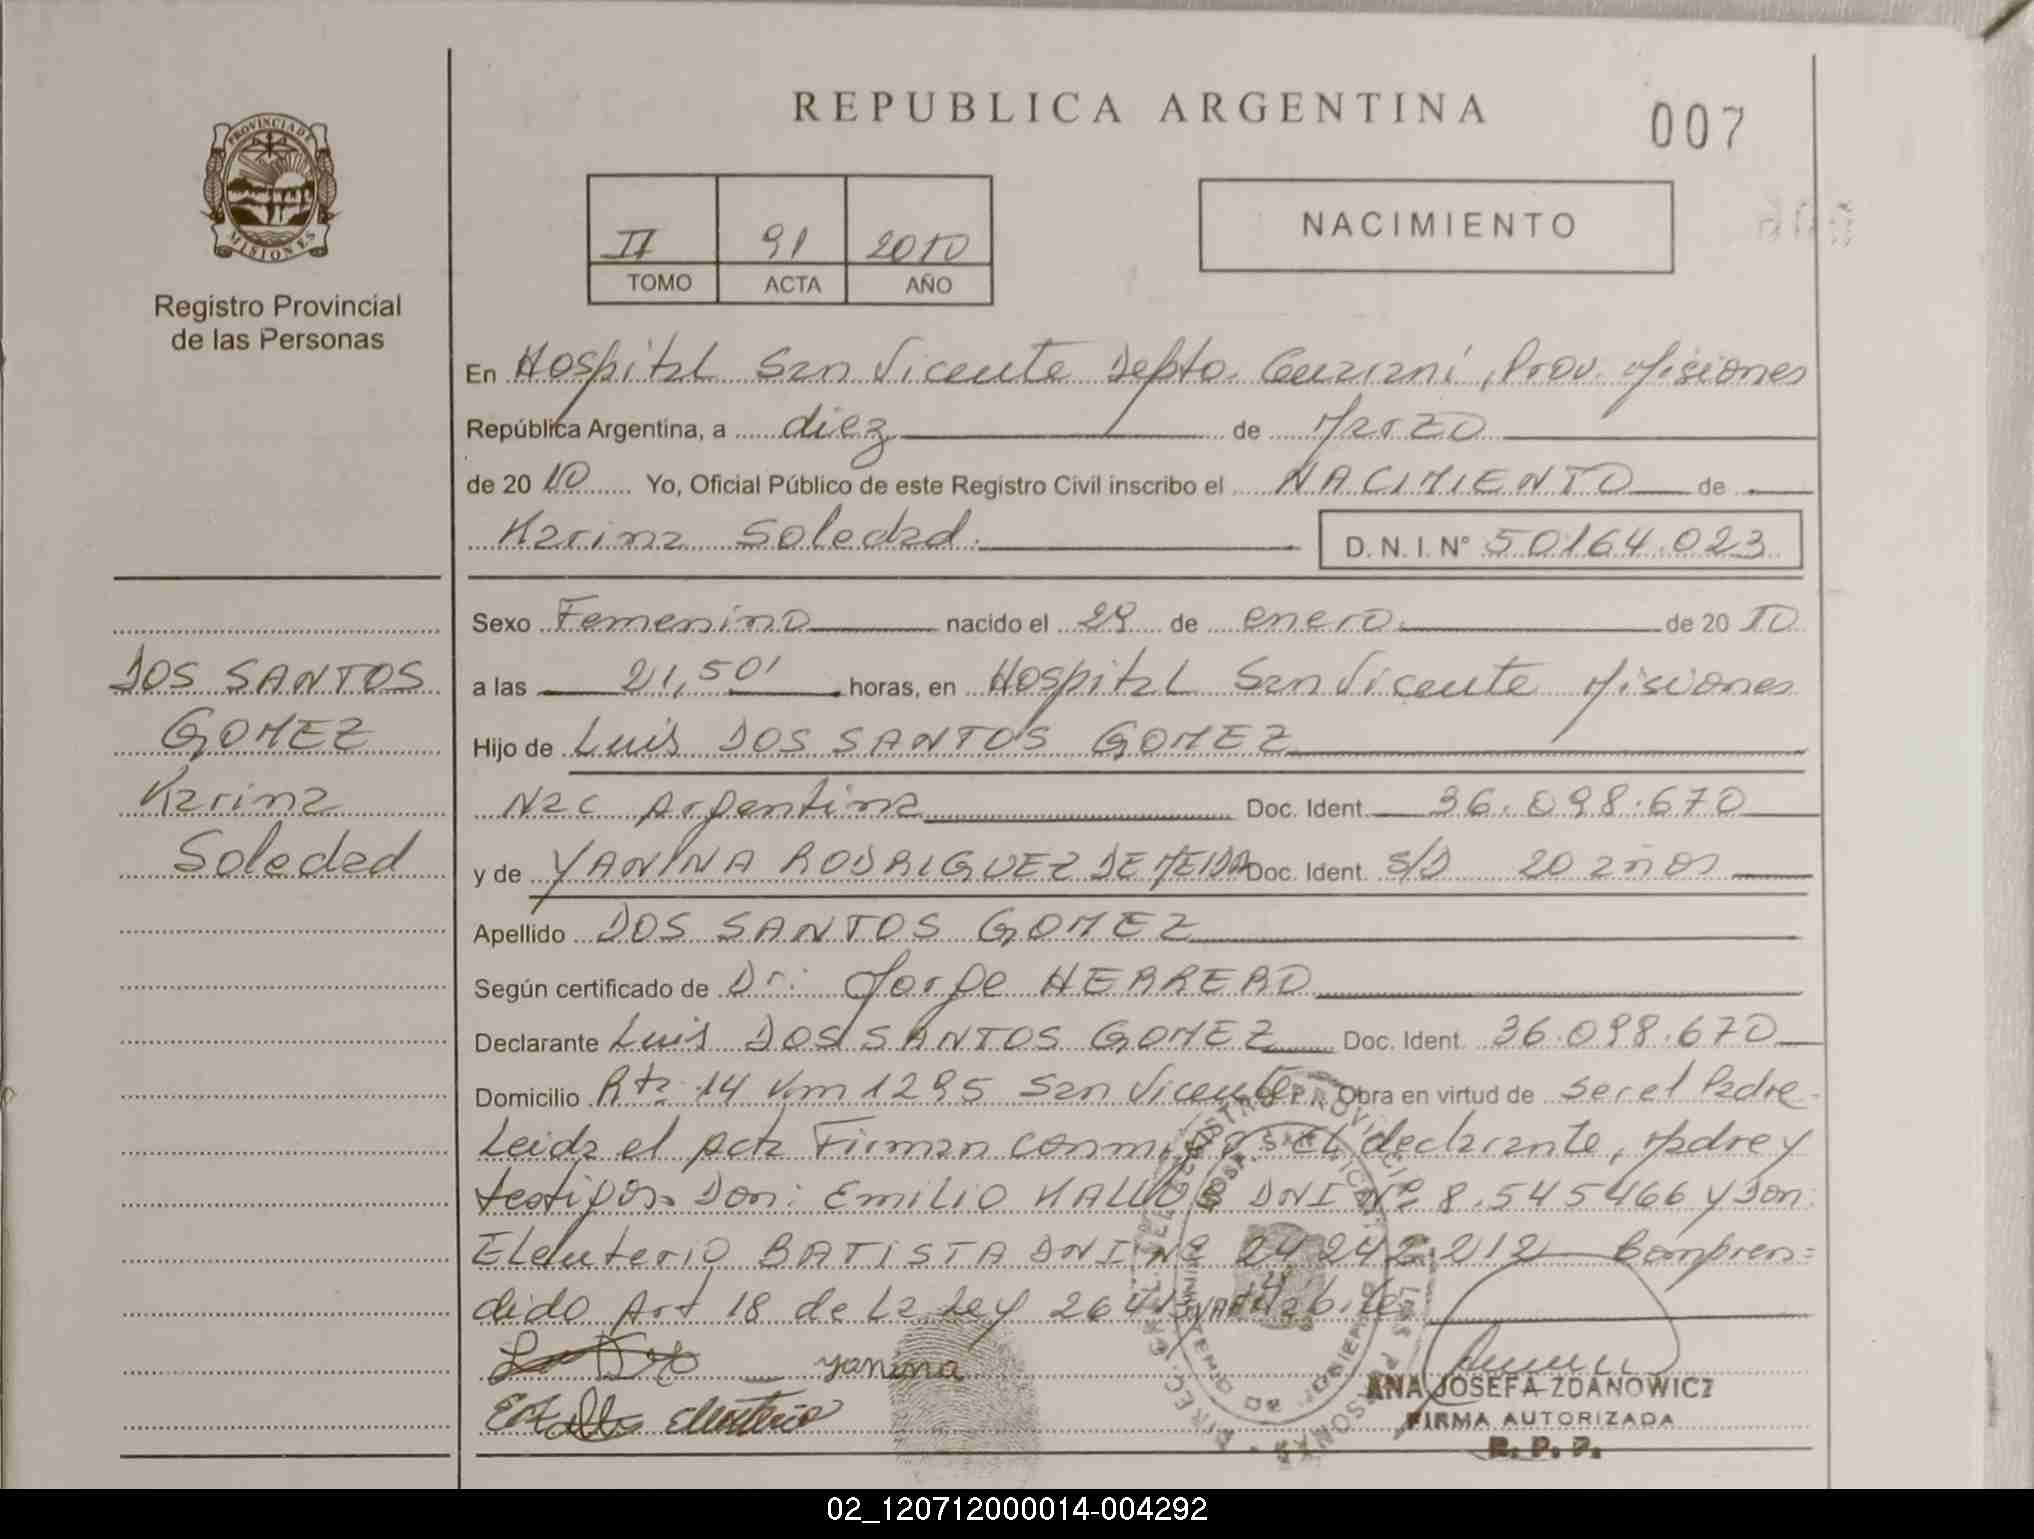 REPUBLICA ARGENTINA
007
PROVINCIA DE
MISIONES
Registro Provincial
de las Personas
II 91 2010
TOMO ACTA AÑO
NACIMIENTO
En Hospital San Vicente Depto. Guarani, Prov. Misiones
República Argentina, a diez de Marzo
de 2010 Yo, Oficial Público de este Registro Civil inscribo el NACIMIENTO de
Karina Soledad.
D.N.I. N° 50164.023
DOS SANTOS
GOMEZ
Karina
Soledad
Sexo Femenino nacido el 29 de enero de 2010
a las 21,50' horas, en Hospital San Vicente Misiones
Hijo de Luis DOS SANTOS GOMEZ
Nac Argentina Doc. Ident. 36.098.670
y de YANINA RODRIGUEZ DE MEIDA Doc. Ident. S/D 20 años
Apellido DOS SANTOS GOMEZ
Según certificado de Dr: Jorge HERRERO
Declarante Luis DOS SANTOS GOMEZ Doc. Ident. 36.098.670
Domicilio Rta 14 Km 1295 San Vicente. Obra en virtud de ser el Padre
Leida el Acta Firman conmigo El declarante, Madre y
testigos Don: EMILIO DNI Nº 8.545466 y Don:
Eleuterio BATISTA DNI Nº 24242.212 Compren=
dido Art 18 de La Ley 26413
yanina
eleuterio
ANA JOSEFA ZDANOWICZ
FIRMA AUTORIZADA
R. P. P.
02_120712000014-004292